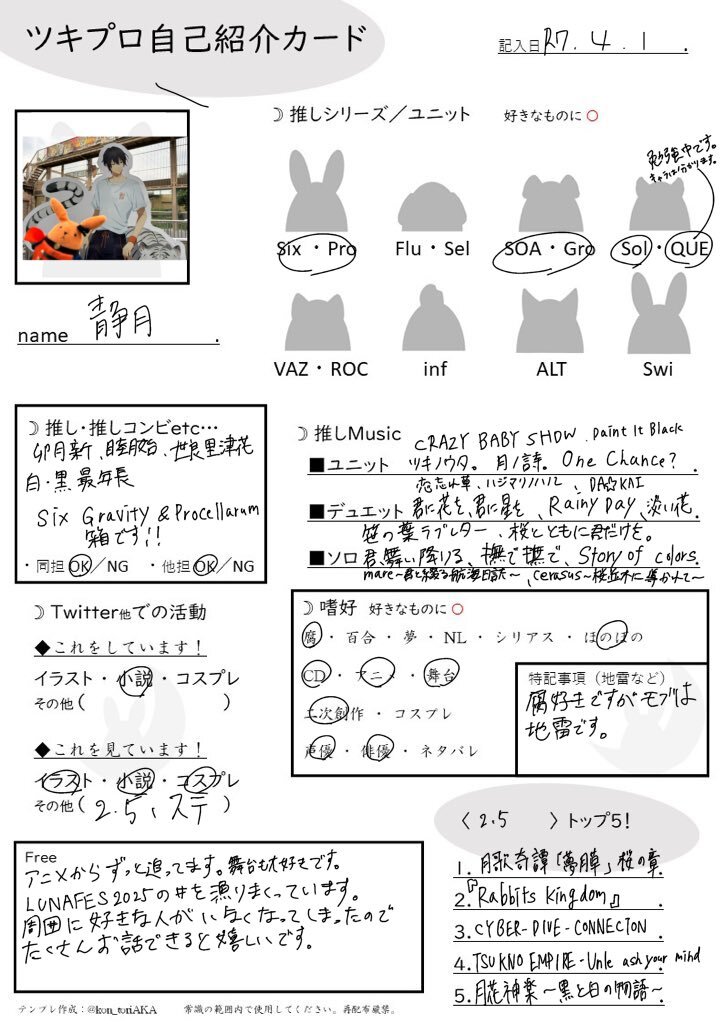 ツキプロ自己紹介カード
記入日 R7.4.1.
☽ 推しシリーズ／ユニット 好きなものに○
勉強中です。
キャラは分かります。
Six・Pro Flu・Sel SOA・Gro Sol・QUE
VAZ・ROC inf ALT Swi
name 静月.
☽ 推し・推しコンビetc…
卯月新、睦月始、世良里津花
白・黒 最年長
Six Gravity & Procellarum
箱です!!
・同担 OK／NG ・他担 OK／NG
☽ 推しMusic
CRAZY BABY SHOW. Paint It Black
■ユニット ツキノウタ。月ノ詩。One Chance?
恋忘れ草、ハジマリノハル、DA☆KAI
■デュエット 君に花を、君に星を、Rainy Day、淡い花.
笹の葉ラブレター、桜とともに君だけを。
■ソロ 君、舞い降りる、撫で撫で、Story of colors.
mare～君と綴る航海日誌～、cerasus～桜並木に導かれて～
☽ Twitter他での活動
◆これをしています！
イラスト・小説・コスプレ
その他（ ）
◆これを見ています！
イラスト・小説・コスプレ
その他（2.5、ステ）
☽ 嗜好 好きなものに○
腐・百合・夢・NL・シリアス・ほのぼの
CD・アニメ・舞台
二次創作・コスプレ
声優・俳優・ネタバレ
特記事項（地雷など）
腐好きですがモブは
地雷です。
〈2.5〉トップ5！
1. 月歌奇譚「夢見草」桜の章
2.『Rabbits Kingdom』
3. CYBER-DIVE-CONNECTON
4. TSUKNO EMPIRE-Unle ash your mind
5. 月花神楽～黒と白の物語～
Free
アニメからずっと追ってます。舞台も大好きです。
LUNAFES2025の#を漁りまくっています。
周囲に好きな人がいなくなってしまったので
たくさんお話できると嬉しいです。
テンプレ作成：@kon_toriAKA 常識の範囲内で使用してください。再配布厳禁。